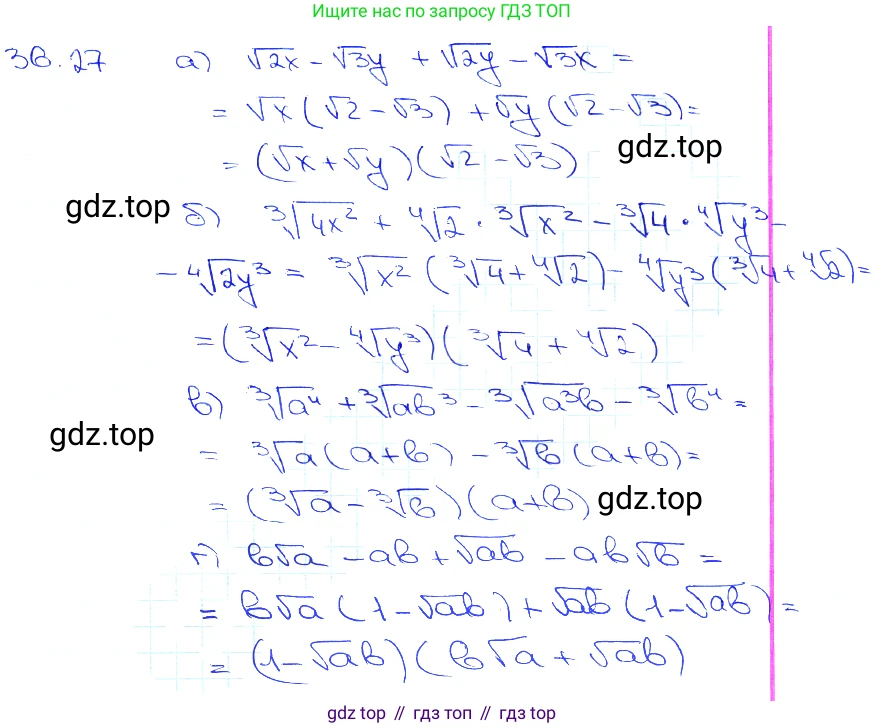 Ищите нас по запросу ГДЗ ТОП
38.27 а) √2x - √3y + √2y - √3x =
= √x (√2 - √3) + √y (√2 - √3) =
= (√x + √y)(√2 - √3)
gdz.top
gdz.top
б) ∛4x² + ∜2 · ∛x² - ∛4 · ∜y³ -
- ∜2y³ = ∛x² (∛4 + ∜2) - ∜y³ (∛4 + ∜2) =
= (∛x² - ∜y³)(∛4 + ∜2)
в) ∛a⁴ + ∛ab³ - ∛a³b - ∛b⁴ =
gdz.top
= ∛a (a+b) - ∛b (a+b) =
= (∛a - ∛b)(a+b)
gdz.top
г) b√a - ab + √ab - ab√b =
= b√a (1 - √ab) + √ab (1 - √ab) =
= (1 - √ab)(b√a + √ab)
gdz.top // гдз.топ // gdz.top